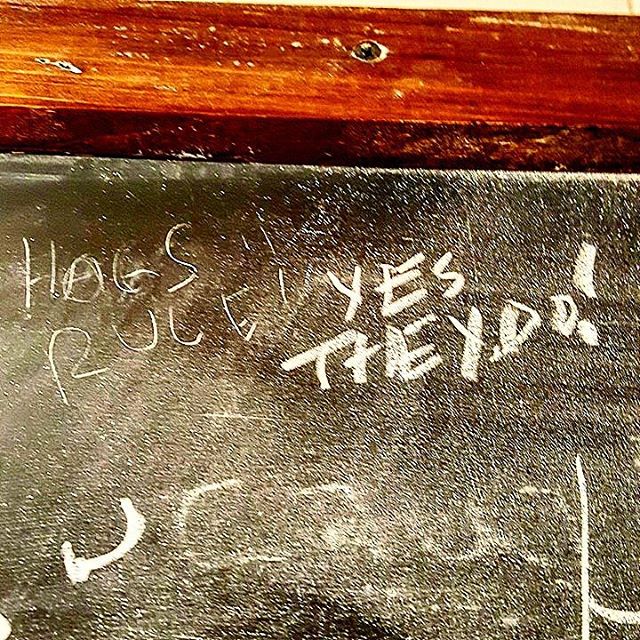 HAGS
RULE!
YES
THEY DO!